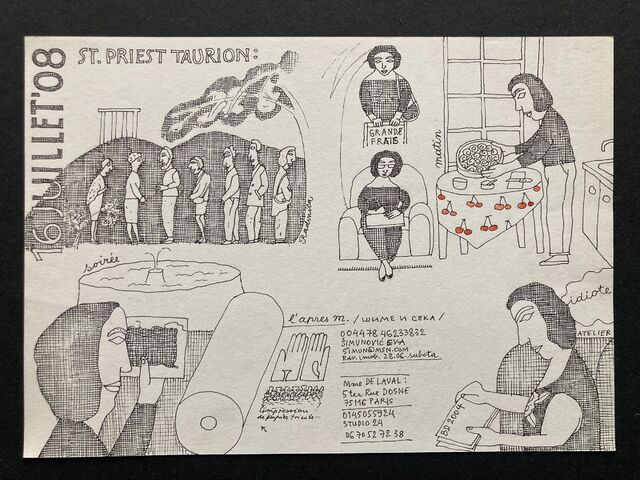 16 JUILLET '08
ST. PRIEST TAURION:
GRANDE
FRAIS
matin
soirée
l'apres m. / ШИМЕ И СЕКА /
004478 46233832
ŠIMUNOVIĆ EVA
SIMUN@MSN.COM
Rdv. imob. 28.06. subota
Mme DE LAVAL:
5 ter Rue DOSNE
75116 PARIS
0145055924
STUDIO 24
06 70 52 72 38
impression
de papier
idiote
ATELIER
BD 2004